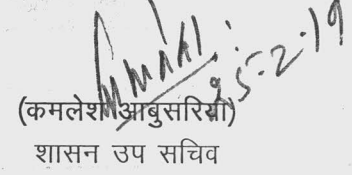 25-2-19
(कमलेश आबुसरिया)
शासन उप सचिव